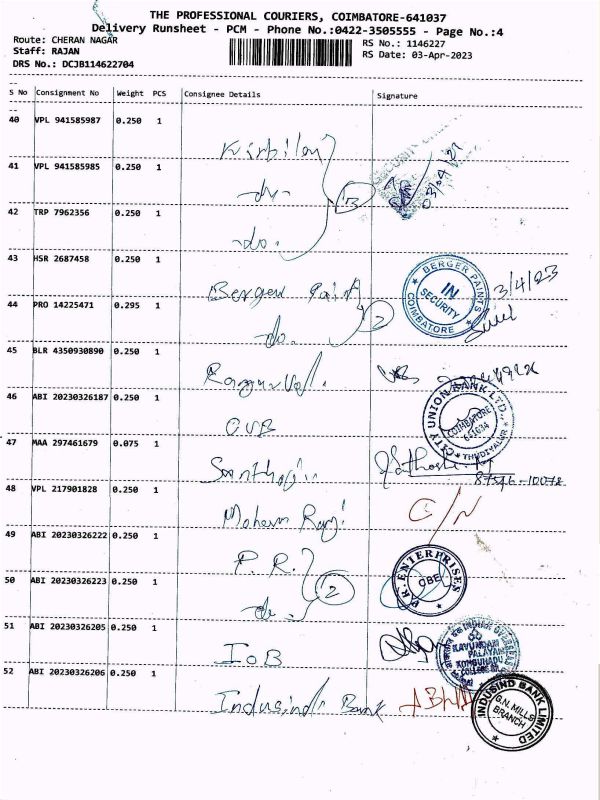 THE PROFESSIONAL COURIERS, COIMBATORE-641037
Delivery Runsheet - PCM - Phone No.:0422-3505555 - Page No.:4
Route: CHERAN NAGAR
RS No.: 1146227
Staff: RAJAN
RS Date: 03-Apr-2023
DRS No.: DCJB114622704
S No Consignment No Weight PCS Consignee Details Signature
40 VPL 941585987 0.250 1
41 VPL 941585985 0.250 1
do
3
03/04/23
42 TRP 7962356 0.250 1
do.
43 HSR 2687458 0.250 1
Berger Paint
BERGER PAINTS
IN
SECURITY
COIMBATORE
3/4/23
44 PRO 14225471 0.295 1
do.
2
45 BLR 4350930890 0.250 1
46 ABI 20230326187 0.250 1
CUB
CITY UNION BANK LTD.,
COIMBATORE
641034
THUDIYALUR
47 MAA 297461679 0.075 1
87546-10072
48 VPL 217901828 0.250 1
Mohan
C/N
49 ABI 20230326222 0.250 1
P. R.
R. ENTERPRISES
CBE
50 ABI 20230326223 0.250 1
do.
2
51 ABI 20230326205 0.250 1
IOB
INDIAN OVERSEAS
KAVUNDAM
PALAYAM
KONGUNADU
COLLEGE BR.
52 ABI 20230326206 0.250 1
Indusind Bank
INDUSIND BANK LIMITED
G.N. MILLS
BRANCH